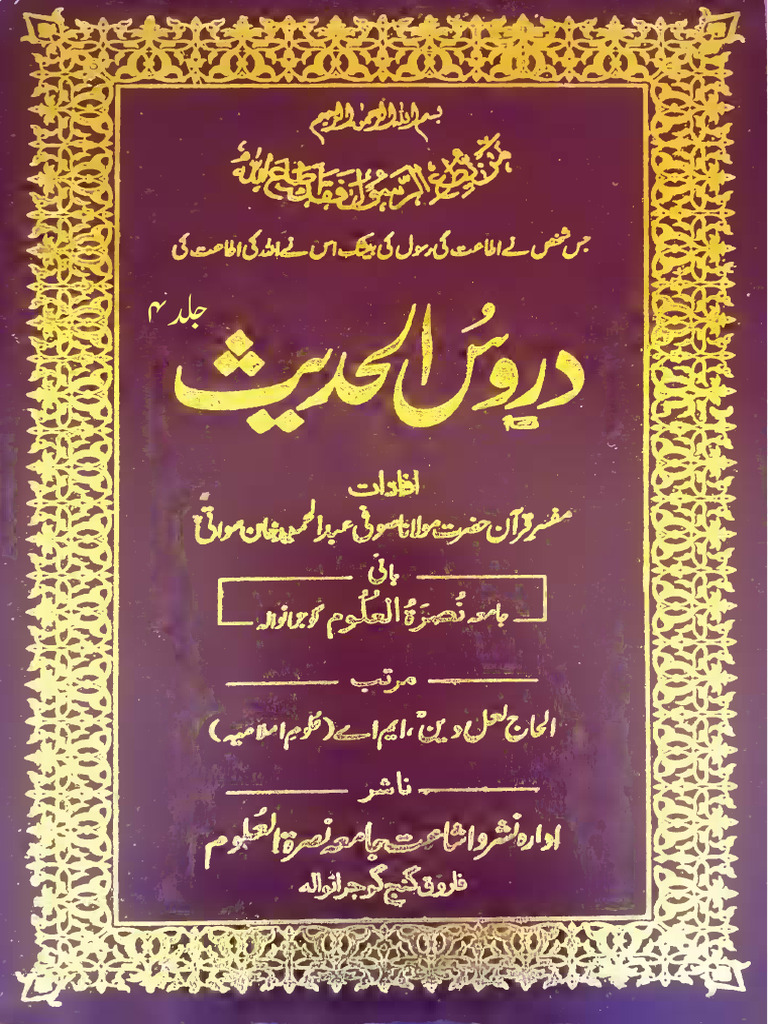 بسم اللہ الرحمن الرحیم
مَنْ يُطِعِ الرَّسُولَ فَقَدْ أَطَاعَ اللهَ
جس شخص نے اطاعت کی رسول کی بیشک اس نے اللہ کی اطاعت کی
جلد ۴
دروسُ الحدیث
افادات
مفسر قرآن حضرت مولانا صوفی عبدالحمید خان سواتیؒ
بانی
جامعہ نُصرَۃُ العُلُوم گوجرانوالہ
مرتب
الحاج لعل دینؒ، ایم اے (علوم اسلامیہ)
ناشر
ادارہ نشر و اشاعت جامعہ نصرۃ العُلوم
فاروق گنج گوجرانوالہ